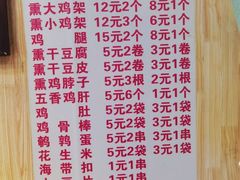 熏大鸡架 12元2个 8元1个
熏小鸡架 12元3个 6元1个
鸡腿 15元2个 8元1个
熏干豆腐 5元2卷 3元1卷
熏干豆皮 5元2卷 3元1卷
熏鸡脖子 5元3根 2元1根
五香鸡肝 5元6个 1元1个
鸡肚 5元2袋 3元1袋
鸡骨棒 5元2袋 3元1袋
鹌鹑蛋 5元2串 3元1串
花生米 5元2袋 3元1袋
海带扣 1元1串